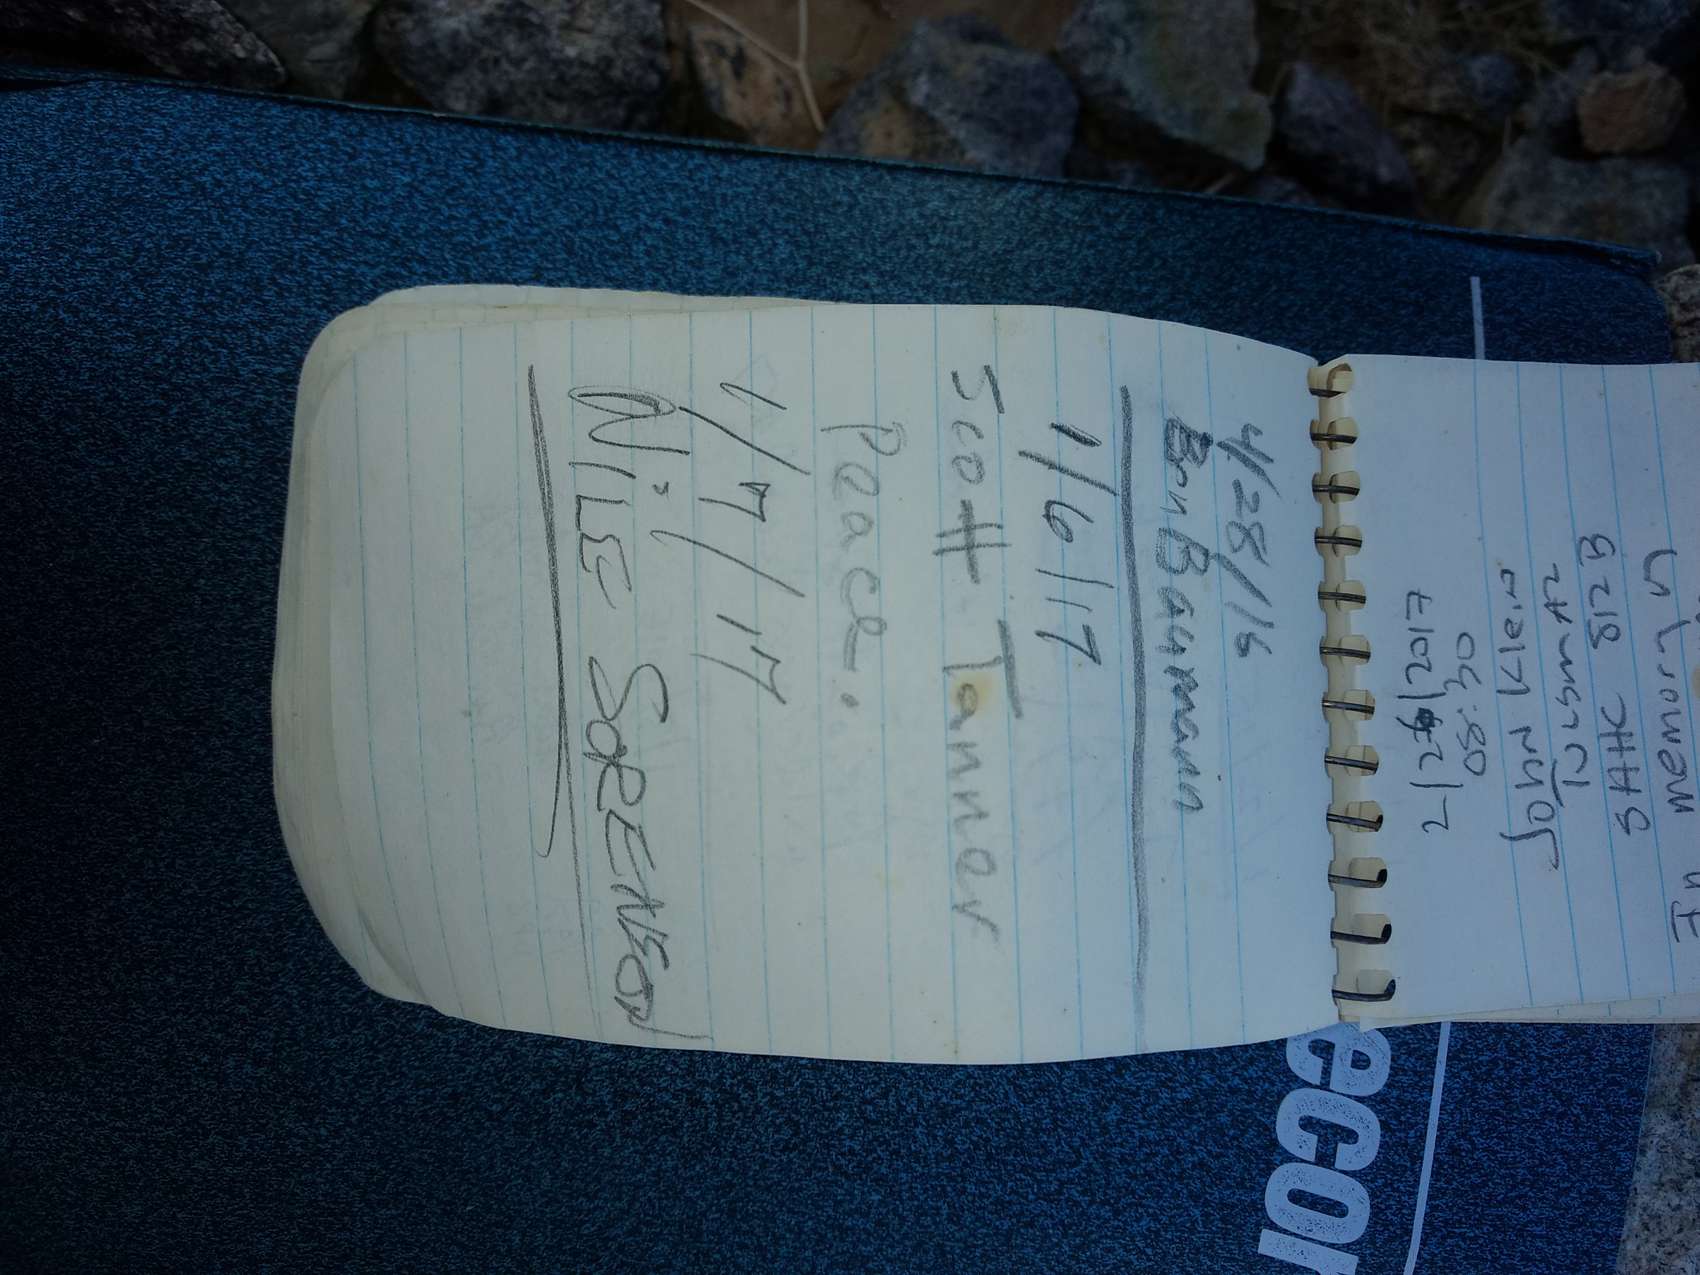 4/28/16
Ben Baumann
1/6/17
Scott Tanner
Peace.
1/7/17
NILE SORENSON
2/26/2017
08:30
John Klein
SAHC 812B
In memory
ecor